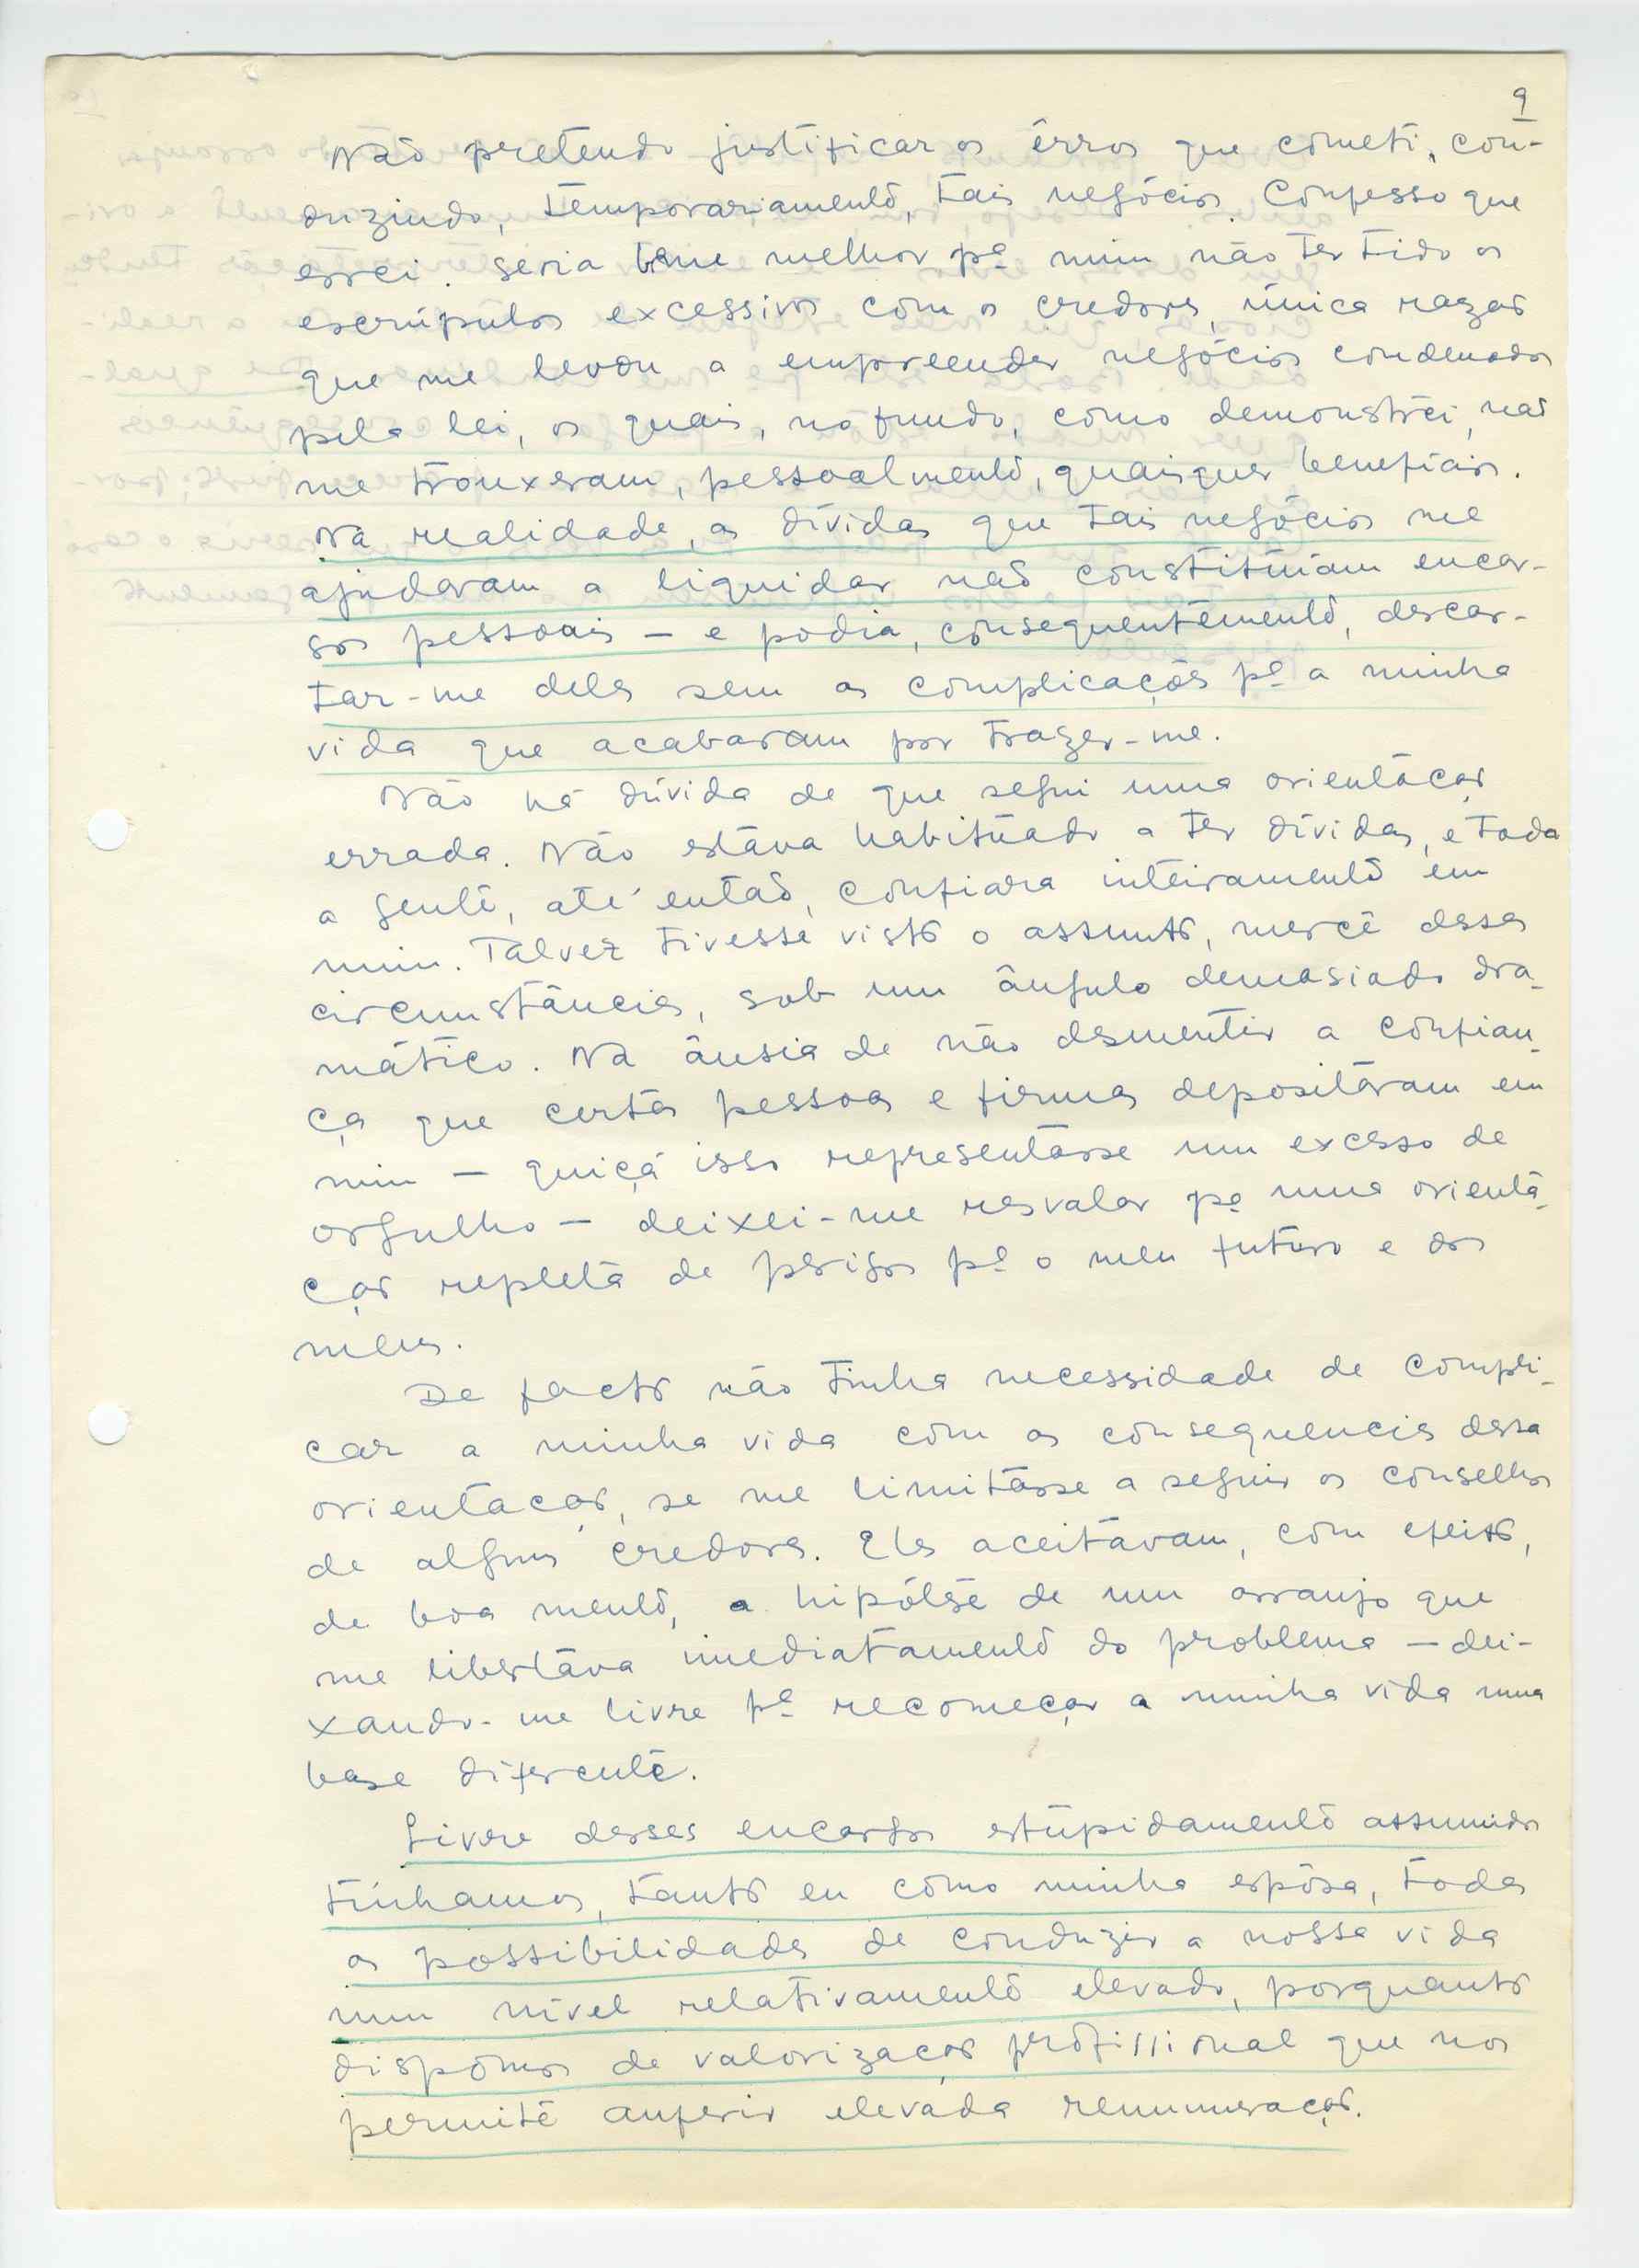 9
Não pretendo justificar os érros que cometi, con-
duzindo, temporariamente, tais negócios. Confesso que
errei. Seria bem melhor pª mim não ter tido os
escrúpulos excessivos com os credores, única razão
que me levou a empreender negócios condenados
pela lei, os quais, no fundo, como demonstrei, não
me trouxeram, pessoalmente, quaisquer beneficios.
Na realidade, as dívidas que tais negócios me
ajudaram a liquidar não constituiam encar-
gos pessoais - e podia, consequentemente, descar-
tar-me deles sem as complicações pª a minha
vida que acabaram por trazer-me.
Não há dúvida de que segui uma orientação
errada. Não estava habituado a ter dívidas, e toda
a gente, até então, confiara inteiramente em
mim. Talvez tivesse visto o assunto, mercê dessas
circunstâncias, sob um ângulo demasiado dra-
mático. Na ânsia de não desmentir a confian-
ça que certas pessoas e firmas depositavam em
mim - quiçá isso representasse um excesso de
orgulho - deixei-me resvalar pª uma orienta-
ção repleta de perigos pª o meu futuro e dos
meus.
De facto não tinha necessidade de compli-
car a minha vida com as consequencias dessa
orientação, se me limitasse a seguir os conselhos
de alguns credores. Eles aceitavam, com efeito,
de boa mente, a hipótese de um arranjo que
me libertava imediatamente do problema - dei-
xando-me livre pª recomeçar a minha vida numa
base diferente.
Livre desses encargos estúpidamente assumidos
tínhamos, tanto eu como minha espôsa, todas
as possibilidades de conduzir a nossa vida
num nível relativamente elevado, porquanto
dispomos de valorização profissional que nos
permite auferir elevada renumeração.